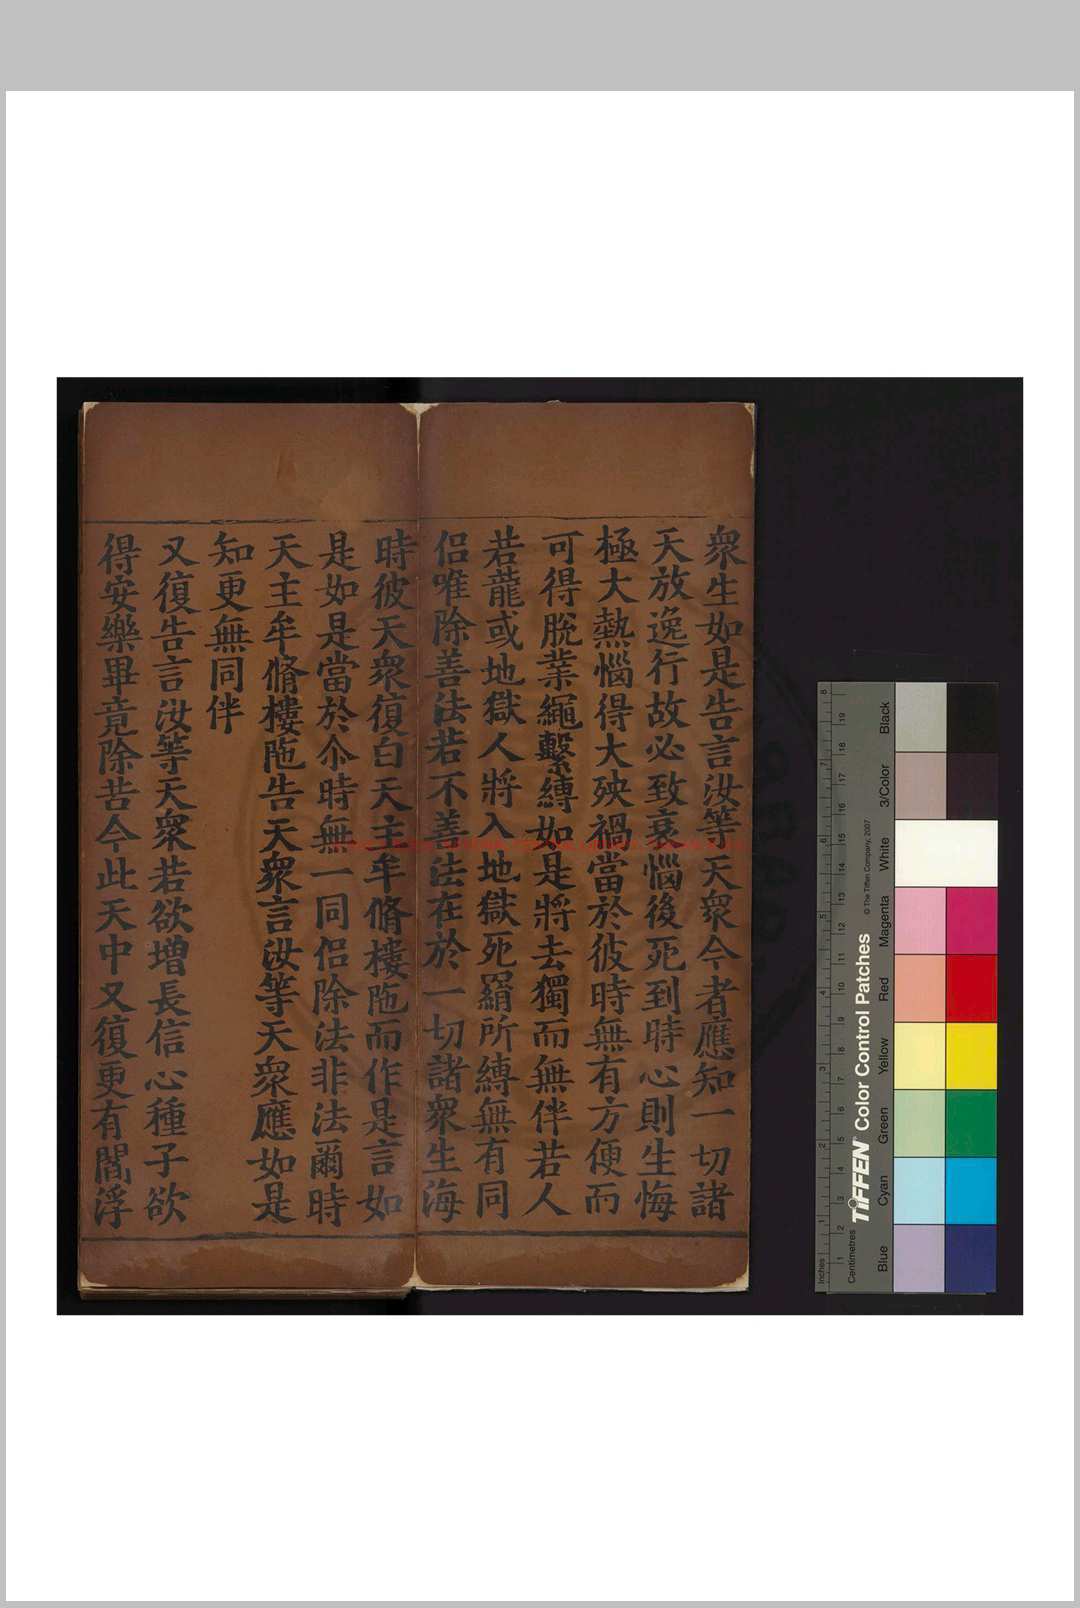 眾生如是告言汝等天眾今者應知一切諸
天放逸行故必致衰惱後死到時心則生悔
極大熱惱得大殃禍當於彼時無有方便而
可得脫業繩繫縛如是將去獨而無伴若人
若龍或地獄人將入地獄死羂所縛無有同
侶唯除善法若不善法在於一切諸眾生海
時彼天眾復白天主牟脩樓陁而作是言如
是如是當於尒時無一同侶除法非法爾時
天主牟脩樓陁告天眾言汝等天眾應如是
知更無同伴
又復告言汝等天眾若欲增長信心種子欲
得安樂畢竟除苦今此天中又復更有閻浮
Inches
Centimetres
TIFFEN Color Control Patches
© The Tiffen Company, 2007
Blue
Cyan
Green
Yellow
Red
Magenta
White
3/Color
Black